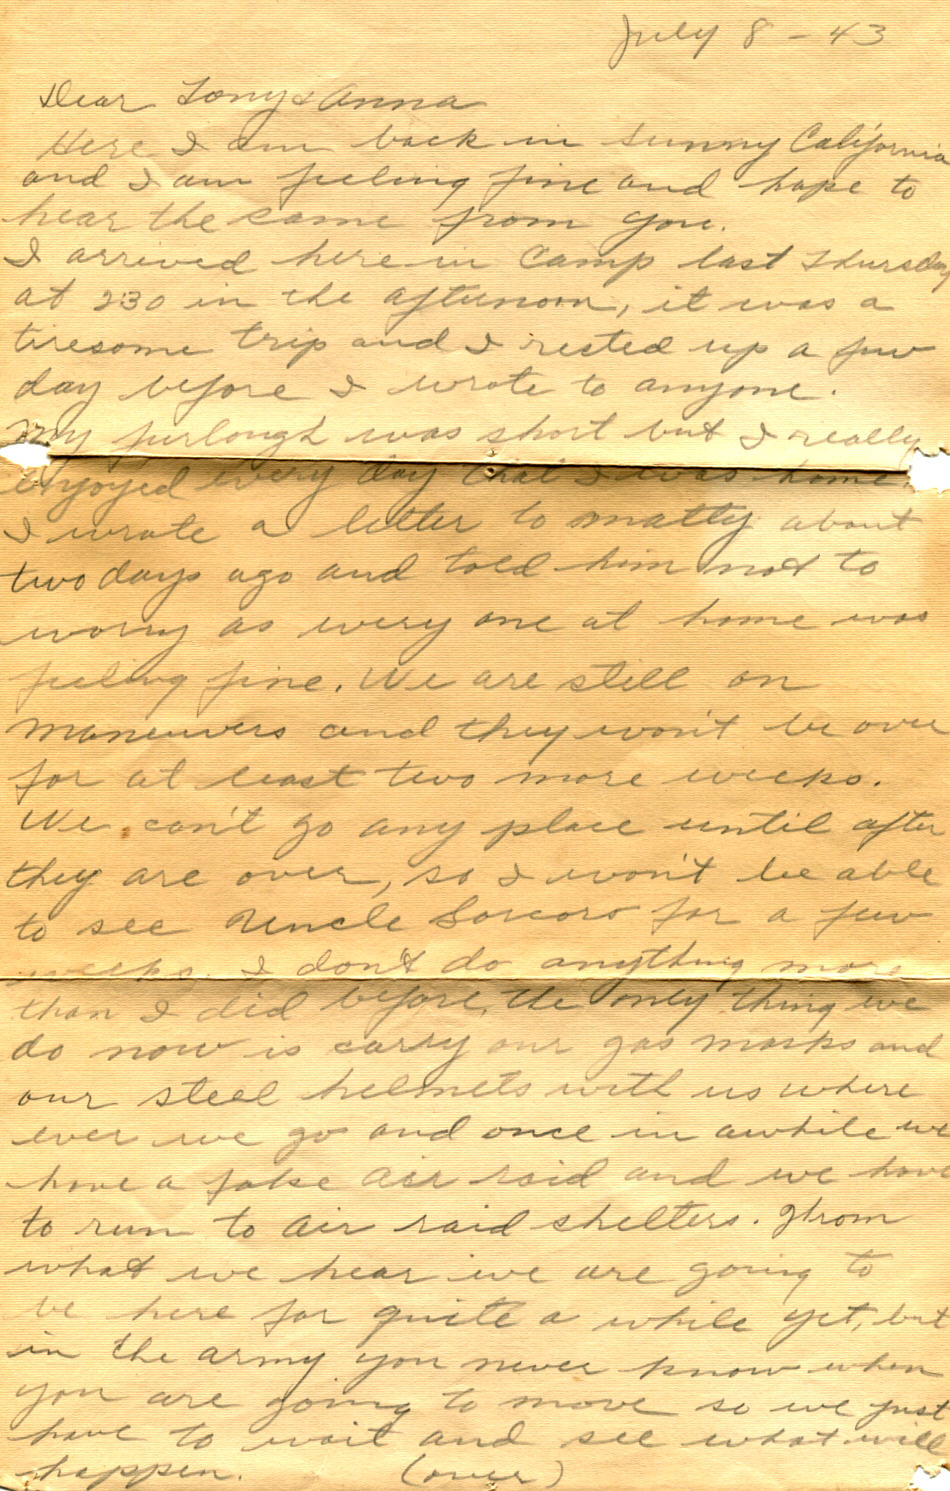 July 8 - 43
Dear Tony & Anna
Here I am back in sunny California
and I am feeling fine and hope to
hear the same from you.
I arrived here in Camp last Thursday
at 230 in the afternoon, it was a
tiresome trip and I rested up a few
day before I wrote to anyone.
My furlough was short but I really
enjoyed every day that I was home.
I wrote a letter to Matty about
two days ago and told him not to
worry as every one at home was
feeling fine. We are still on
maneuvers and they won't be over
for at least two more weeks.
We can't go any place until after
they are over, so I won't be able
to see Uncle for a few
weeks. I don't do anything more
than I did before, the only thing we
do now is carry our gas masks and
our steel helmets with us where
ever we go and once in awhile we
have a fake air raid and we have
to run to air raid shelters. From
what we hear we are going to
be here for quite a while yet, but
in the army you never know when
you are going to move so we just
have to wait and see what will
happen. (over)